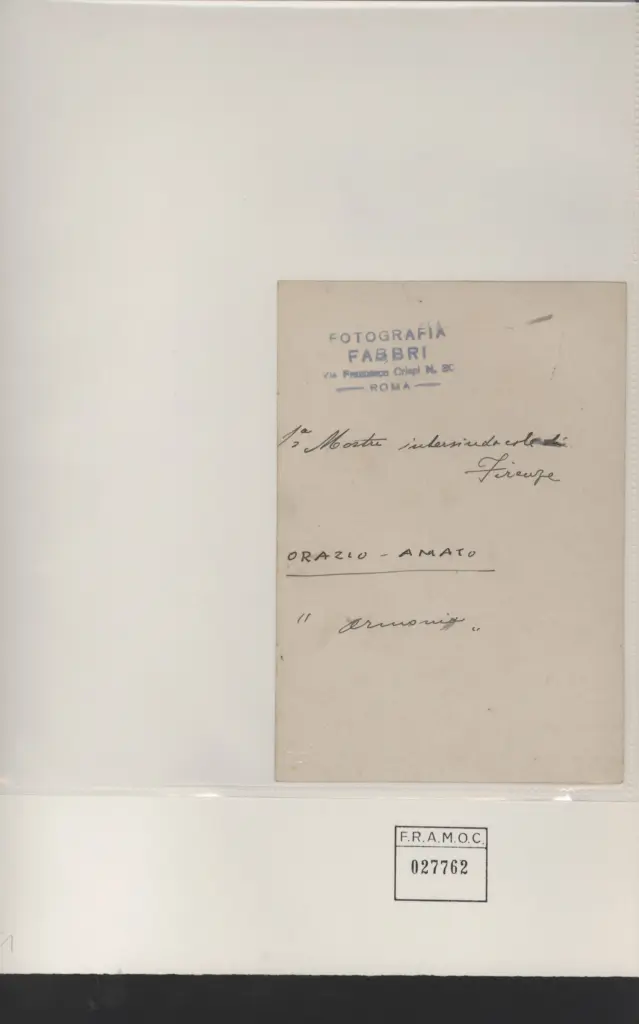 FOTOGRAFIA
FABBRI
Via Francesco Crispi N. 
— ROMA —
1ª Mostra intersindacale di
Firenze
ORAZIO - AMATO
" Armonia "
F.R.A.M.O.C.
027762